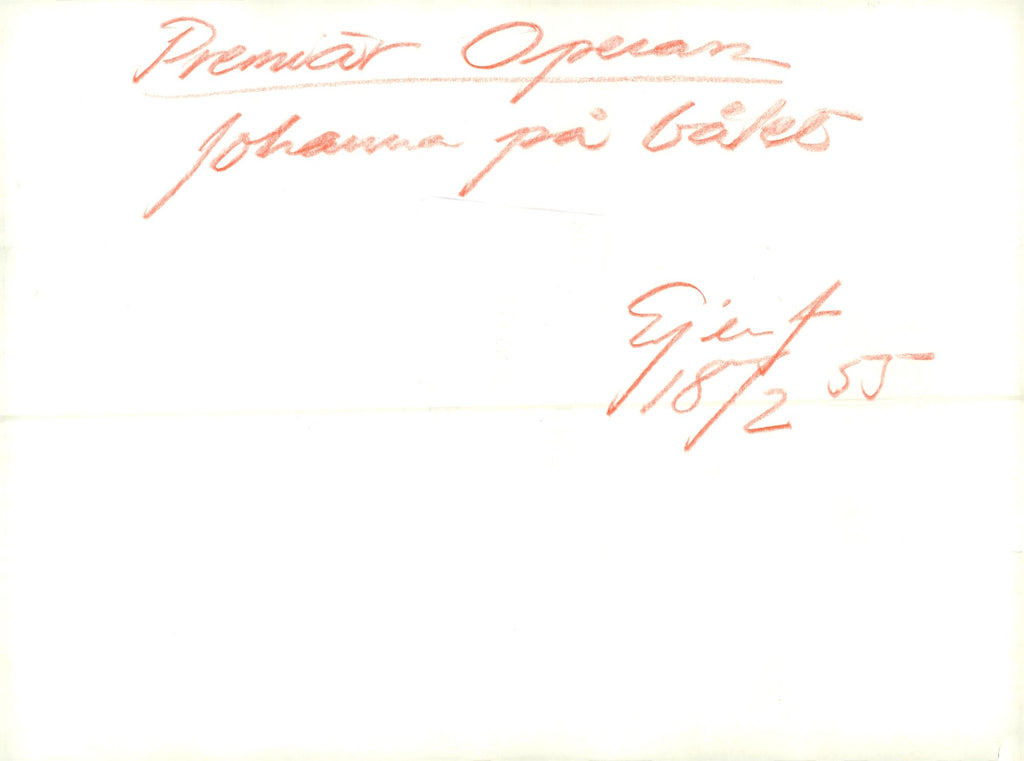 Premiär Operan
Johanna på bålet
18/2 55